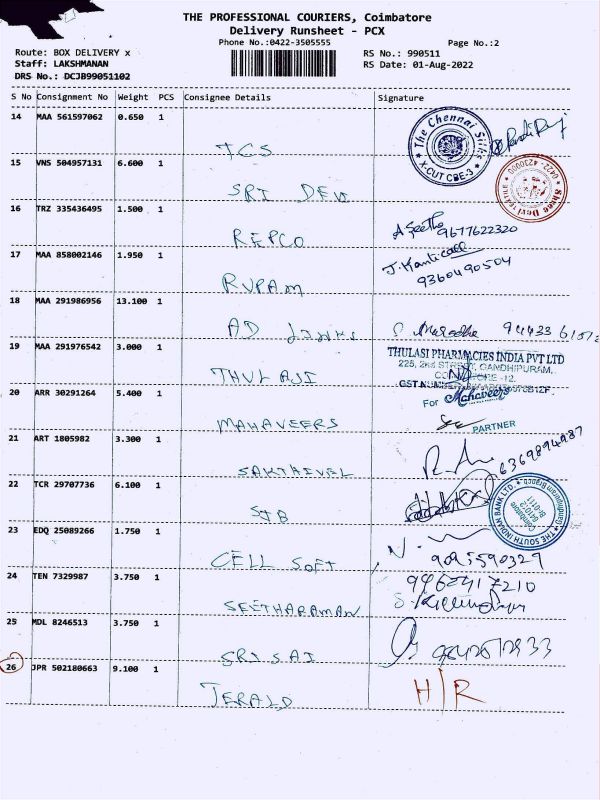 THE PROFESSIONAL COURIERS, Coimbatore
Delivery Runsheet - PCX
Phone No.:0422-3505555
Page No.:2
Route: BOX DELIVERY x
RS No.: 990511
Staff: LAKSHMANAN
RS Date: 01-Aug-2022
DRS No.: DCJB99051102
S No Consignment No Weight PCS Consignee Details Signature
14 MAA 561597062 0.650 1
TCS
The Chennai Silks
X-CUT CBE-3
15 VNS 504957131 6.600 1
SRI DEVI
Shree Devi TEXTILE
0422-4230000
16 TRZ 335436495 1.500 1
REPCO
A. Seetha
9677622320
17 MAA 858002146 1.950 1
RUPAM
9360490504
18 MAA 291986956 13.100 1
AD LINKS
19 MAA 291976542 3.000 1
THULASI
THULASI PHARMACIES INDIA PVT LTD
225, 2nd STREET, GANDHIPURAM,
20 ARR 30291264 5.400 1
MAHAVEERS
For Mahaveers
PARTNER
21 ART 1805982 3.300 1
SAKTHIVEL
6369894987
22 TCR 29707736 6.100 1
SIB
THE SOUTH INDIAN BANK LTD.
23 EDQ 25089266 1.750 1
CELL SOFT
24 TEN 7329987 3.750 1
SEETHARAMAN
25 MDL 8246513 3.750 1
SRI SAI
26 JPR 502180663 9.100 1
JERALD
H/R